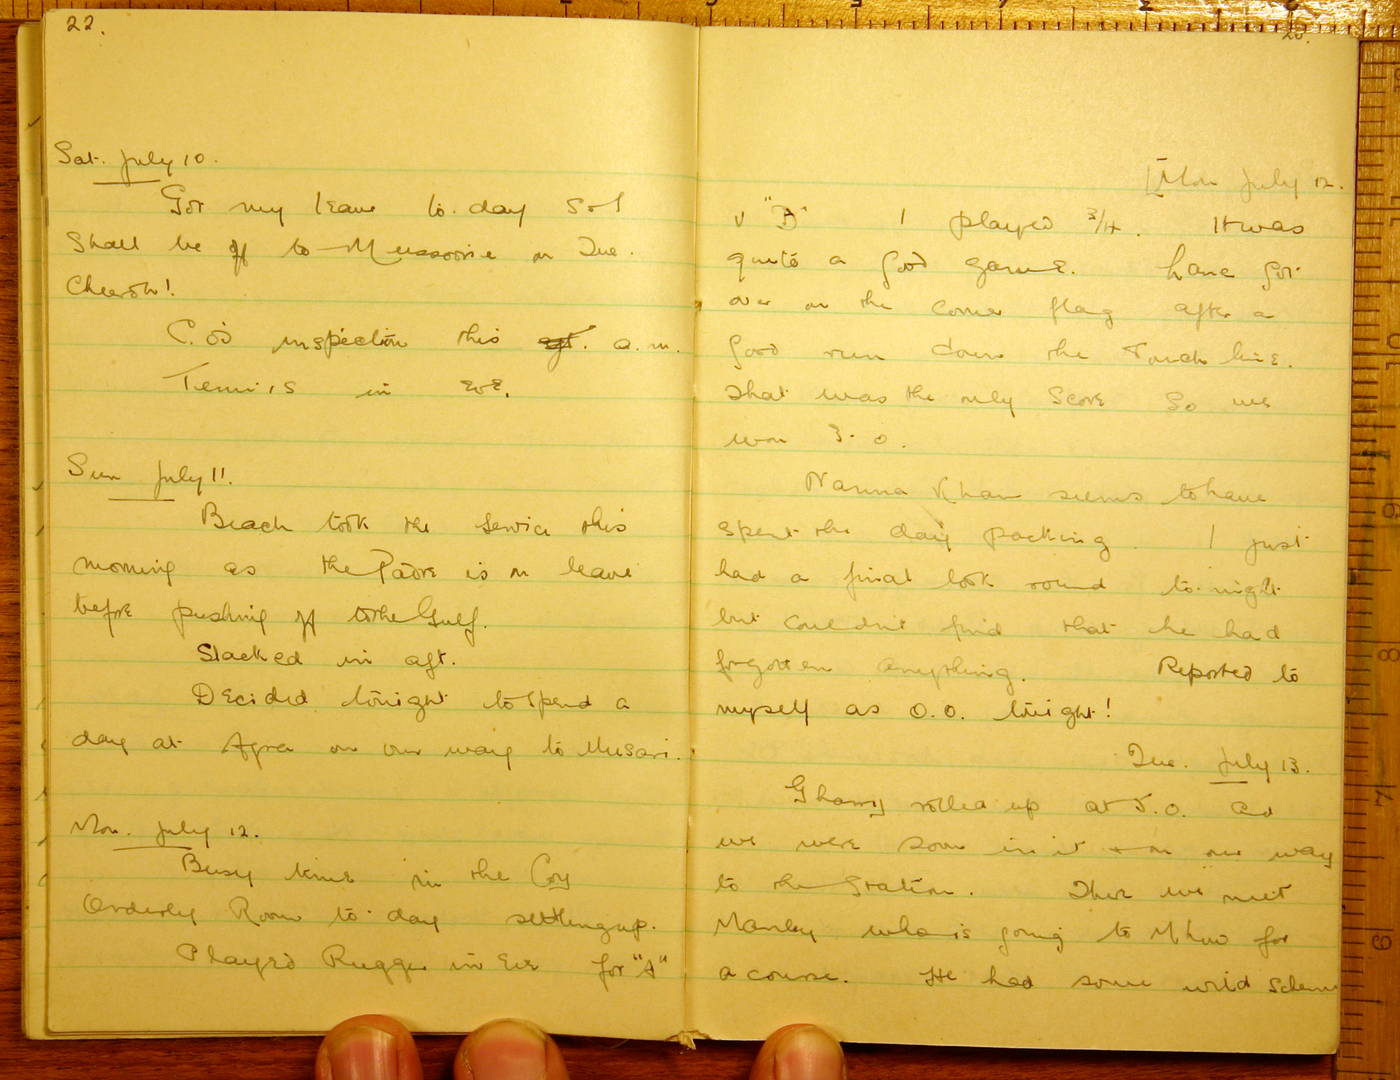 22.
Sat. July 10.
Got my leave to-day so I
shall be off to Mussoorie on Tue.
Cheeroh!
C.O's inspection this aft. a.m.
Tennis in eve.
Sun July 11.
Beach took the service this
morning as the Padre is on leave
before pushing off to the Gulf.
Slacked in aft.
Decided tonight to spend a
day at Agra on our way to Musari.
Mon. July 12.
Busy time in the Coy
Orderly Room to-day settling up.
Played Rugger in Eve for "A"
23.
[Mon July 12.
v "B" I played 3/4. It was
quite a good game. Lane got
over on the corner flag after a
good run down the Touch line.
That was the only score so we
won 3-0.
Nanna Khan seems to have
spent the day packing. I just
had a final look round to-night
but couldn't find that he had
forgotten anything. Reported to
myself as O.O. tonight!
Tue. July 13.
Gharry rolled up at 5.0. and
we were soon in it + on our way
to the Station. There we met
Manley who is going to Mhow for
a course. He had some wild scheme